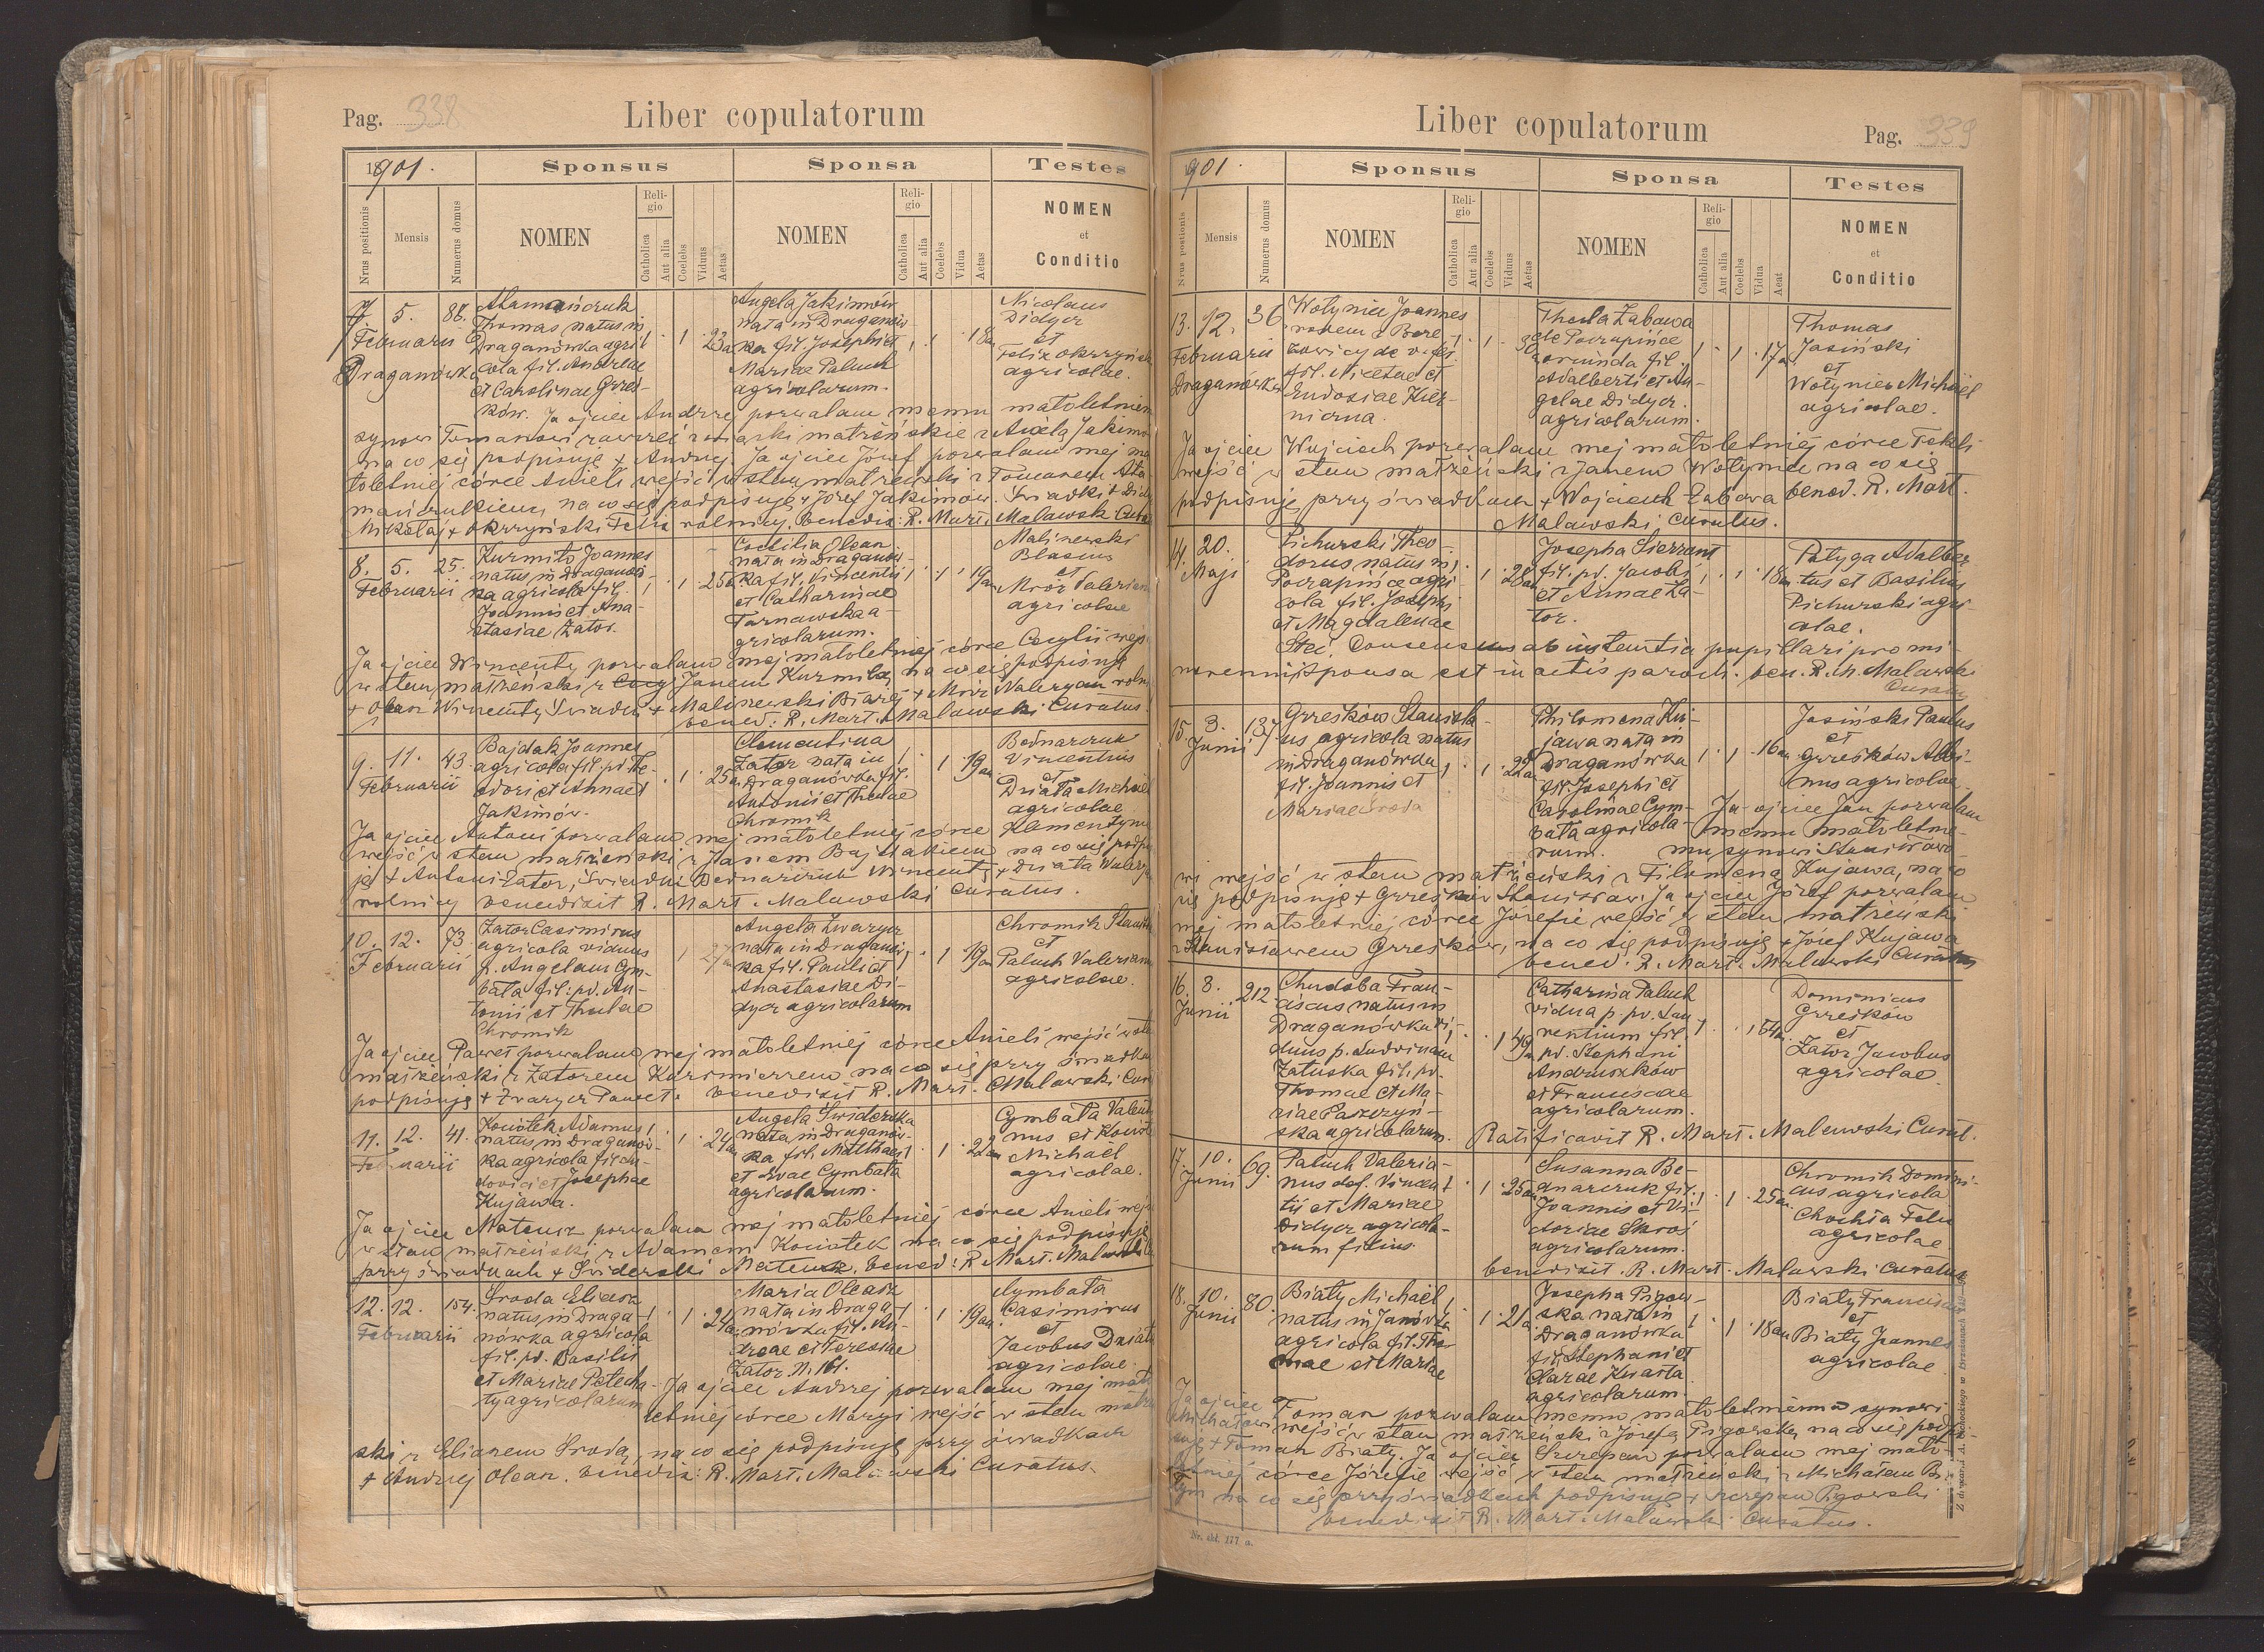 Pag. 338
Liber copulatorum
1901.
Sponsus
Sponsa
Testes
Nrus positionis
Mensis
Numerus domus
NOMEN
Reli-
gio
Catholica
Aut alia
Coelebs
Viduus
Aetas
NOMEN
Reli-
gio
Catholica
Aut alia
Coelebs
Vidua
Aetas
NOMEN
et
Conditio
7 5. 86.
Februarii
Draganówka
Thomas natus in
Draganówka agri
cola fil. Andreae
et Carolinae Grzes-
ków.
1 1 23 a
Angela Jakimów
nata in Draganów
ka fil. Josephi et
Mariae Paluch
agricolarum.
1 1 18 a
Nicolaus
Didycz
et
Felix
agricolae.
Ja ojciec Andrzej pozwalam memu małoletniem
synowi Tomaszowi zawrzeć związki małżeńskie z Anielą Jakimów
na co się podpisuję + Andrzej. Ja ojciec Józef pozwalam mej ma
łoletniej córce Anieli wejść w stan małżeński z Tomaszem
na co się podpisuję + Józef Jakimów. Świadki +
Mikołaj + Okrzyński rolnicy. bened: R. Mart. Malawski
8. 5. 25.
Februarii
Kurmiło Joannes
natus in Draganów-
ka agricola fil.
Joannis et Ana-
stasiae Zator.
1 1 25 a
Coecilia Olean
nata in Draganów-
ka fil. Vincentii
et Catharinae
Tarnawska a-
gricolarum.
1 1 19 an
Malinowski
Blasius
et
Mróz
agricolae
Ja ojciec Wincenty pozwalam mej małoletniej córce Cecylii wejść
w stan małżeński z Janem Kurmiłą, na co się podpisuję
+ Olean Wincenty + Mróz Waleryan
bened: R. Mart. Malawski Curatus
9. 11. 43.
Februarii
Bajdak Joannes
agricola fil. pd. The-
odori et Annae
Jakimów.
1 1 25 a
Clementina
Zator nata in
Draganówka fil.
Antonii et Theclae
Chromik
1 1 19 an
Bednarczuk
Vincentius
et
Działa Michael
agricolae
Ja ojciec Antoni pozwalam mej małoletniej córce Klementynie
wejść w stan małżeński z Janem Bajdakiem na co się podpisu
ję + Antoni Zator, Świadki Bednarczuk Wincenty + Działa
rolnicy benedixit R. Mart. Malawski Curatus.
10. 12. 73.
Februarii
Zator Casimirus
agricola viduus
p. Angelam Cym-
bała fil. pd. An-
tonii et Theclae
Chromik
1 1 27 an
Angela Zwarycz
nata in Draganów-
ka fil. Pauli et
Anastasiae Di-
dycz agricolarum
1 1 19 an
Chromik
et
Paluch Valerianus
agricolae.
Ja ojciec Paweł pozwalam mej małoletniej córce Anieli wejść w
małżeński z Zatorem Kazimierzem na co się przy
podpisuję + Zwarycz Paweł. benedixit R. Mart. Malawski
11. 12. 41.
Februarii
Kociołek Adamus
natus in Draganów-
ka agricola fil.
et Josephae
Kujawa.
1 1 24 an
Angela Świderska
nata in Draganów-
ka fil. Matthaei
et Evae Cymbała
agricolarum.
1 1 22 an
Cymbała
nus et
Michael
agricolae.
Ja ojciec Mateusz pozwalam mej małoletniej córce Anieli wejść
w stan małżeński z Adamem Kociołek na co się podpisuję
przy świadkach + Świderski Mateusz. bened: R. Mart. Malawski
12. 12. 154.
Februarii
Środa Elias
natus in Draga-
nówka agricola
fil. pd. Basilii
et Mariae
agricolarum
1 1 24 an
Maria Olean
nata in Draga-
nówka fil. An-
dreae et Teresiae
Zator
1 1 19 an
Cymbała
Casimirus
et
Jacobus
agricolae.
Ja ojciec Andrzej pozwalam mej mało
letniej córce Maryi wejść w stan małżeń
ski z Eliaszem Środą, na co się podpisuję przy świadkach
+ Andrzej Olean. R. Mart. Malawski Curatus.
Liber copulatorum
Pag. 339
1901
Sponsus
Sponsa
Testes
Nrus postionis
Mensis
Numerus domus
NOMEN
Reli-
gio
Catholica
Aut alia
Coelebs
Viduus
Aetas
NOMEN
Reli-
gio
Catholica
Aut alia
Coelebs
Vidua
Aeat
NOMEN
et
Conditio
13. 12. 36
Februarii
Draganówka
Wołyniec Joannes
fil. Nicetae et
Eudosiae
1 1
Thecla Żabawa
de Poczapińce
fil.
Adalberti et An-
gelae Didycz.
agricolarum.
1 1 17 a
Thomas
Jasiński
et
Wołyniec Michael
agricolae.
Ja ojciec Wojciech pozwalam mej małoletniej córce Tekli
wejść w stan małżeński z Janem Wołyniec na co się
podpisuję przy świadkach + Wojciech Żabawa bened. R. Mart.
Malawski Curatus.
14. 20.
Maji
Pichurski Theo-
dorus natus in
Poczapińce agri-
cola fil. Josephi
et Magdalenae
1 1 28 an
Josepha Sierżant
fil. pd. Jacobi
et Annae Za-
tor.
1 1 18 an
Patyga Adalber-
tus et Basilius
Pichurski agri-
colae.
Consensus ab instantia pupillari pro mi-
norenni sponsa est in actis paroch. ben. R. M. Malawski
Curatus
15 3. 137.
Junii
Grzesków Stanisla-
us agricola natus
in Draganówka
fil. Joannis et
Mariae Środa
1 1 22 an
Philomena Ku-
jawa nata in
Draganówka
fil. Josephi et
Carolinae Cym-
bała agricola-
rum.
1 1 16 an
Jasiński Paulus
et
Grzesków Albi-
nus agricolae
Ja ojciec Jan pozwalam
memu małoletnie-
mu synowi Stanisławo
wi wejść w stan małżeński z Filomeną Kujawą, na co
się podpisuję + Grzesków Stanisław. Ja ojciec Józef pozwalam
mej małoletniej córce Józefie wejść w stan małżeński
z Stanisławem Grzesków, na co się podpisuję + Józef Kujawa
bened. R. Mart. Malawski Curatus
16. 8. 212
Junii
Chudoba Fran-
ciscus natus in
Draganówka vi-
duus p. Ludovicam
Załuska fil. pd.
Thomae et Ma-
riae Paszczyń-
ska agricolarum.
1 1 49 a
Catharina Paluch
vidua p. pd. Lau-
rentium fil.
pd. Stephani
Andruszków
et Franciscae
agricolarum.
1 1 54 an
Dominicus
Grzesków
et
Zator Jacobus
agricolae.
Ratificavit R. Mart. Malawski Curat.
17. 10. 69.
Junii
Paluch Valeria-
nus def. Vincen-
tii et Mariae
Didycz agricola-
rum filius.
1 1 25 an
Susanna Be-
dnarczuk fil.
Joannis et Vi-
ctoriae
agricolarum.
1 1 25 an
Chromik Domini-
cus agricola
Felix
agricolae
benedixit. R. Mart. Malawski Curatus
18. 10. 80.
Junii
Biały Michael
natus in Janówka
agricola fil. Tho-
mae et Mariae
1 1 21 a
Josepha Pigow-
ska nata in
Draganówka
fil. Stephani et
Clarae Kwarta
agricolarum.
1 1 18 an
Biały Franciscus
et
Biały Joannes
agricolae
Ja ojciec Tomasz pozwalam memu małoletniemu synowi
Michałowi wejść w stan małżeński z Józefą Pigowską na co się podpi-
suję + Tomasz Biały. Ja ojciec Szczepan pozwalam mej mało-
letniej córce Józefie wejść w stan małżeński z Michałem Bia-
łym na co się przy świadkach podpisuję + Szczepan Pigowski
benedixit R. Mart. Malawski Curatus.
Nr. skł. 177 a.